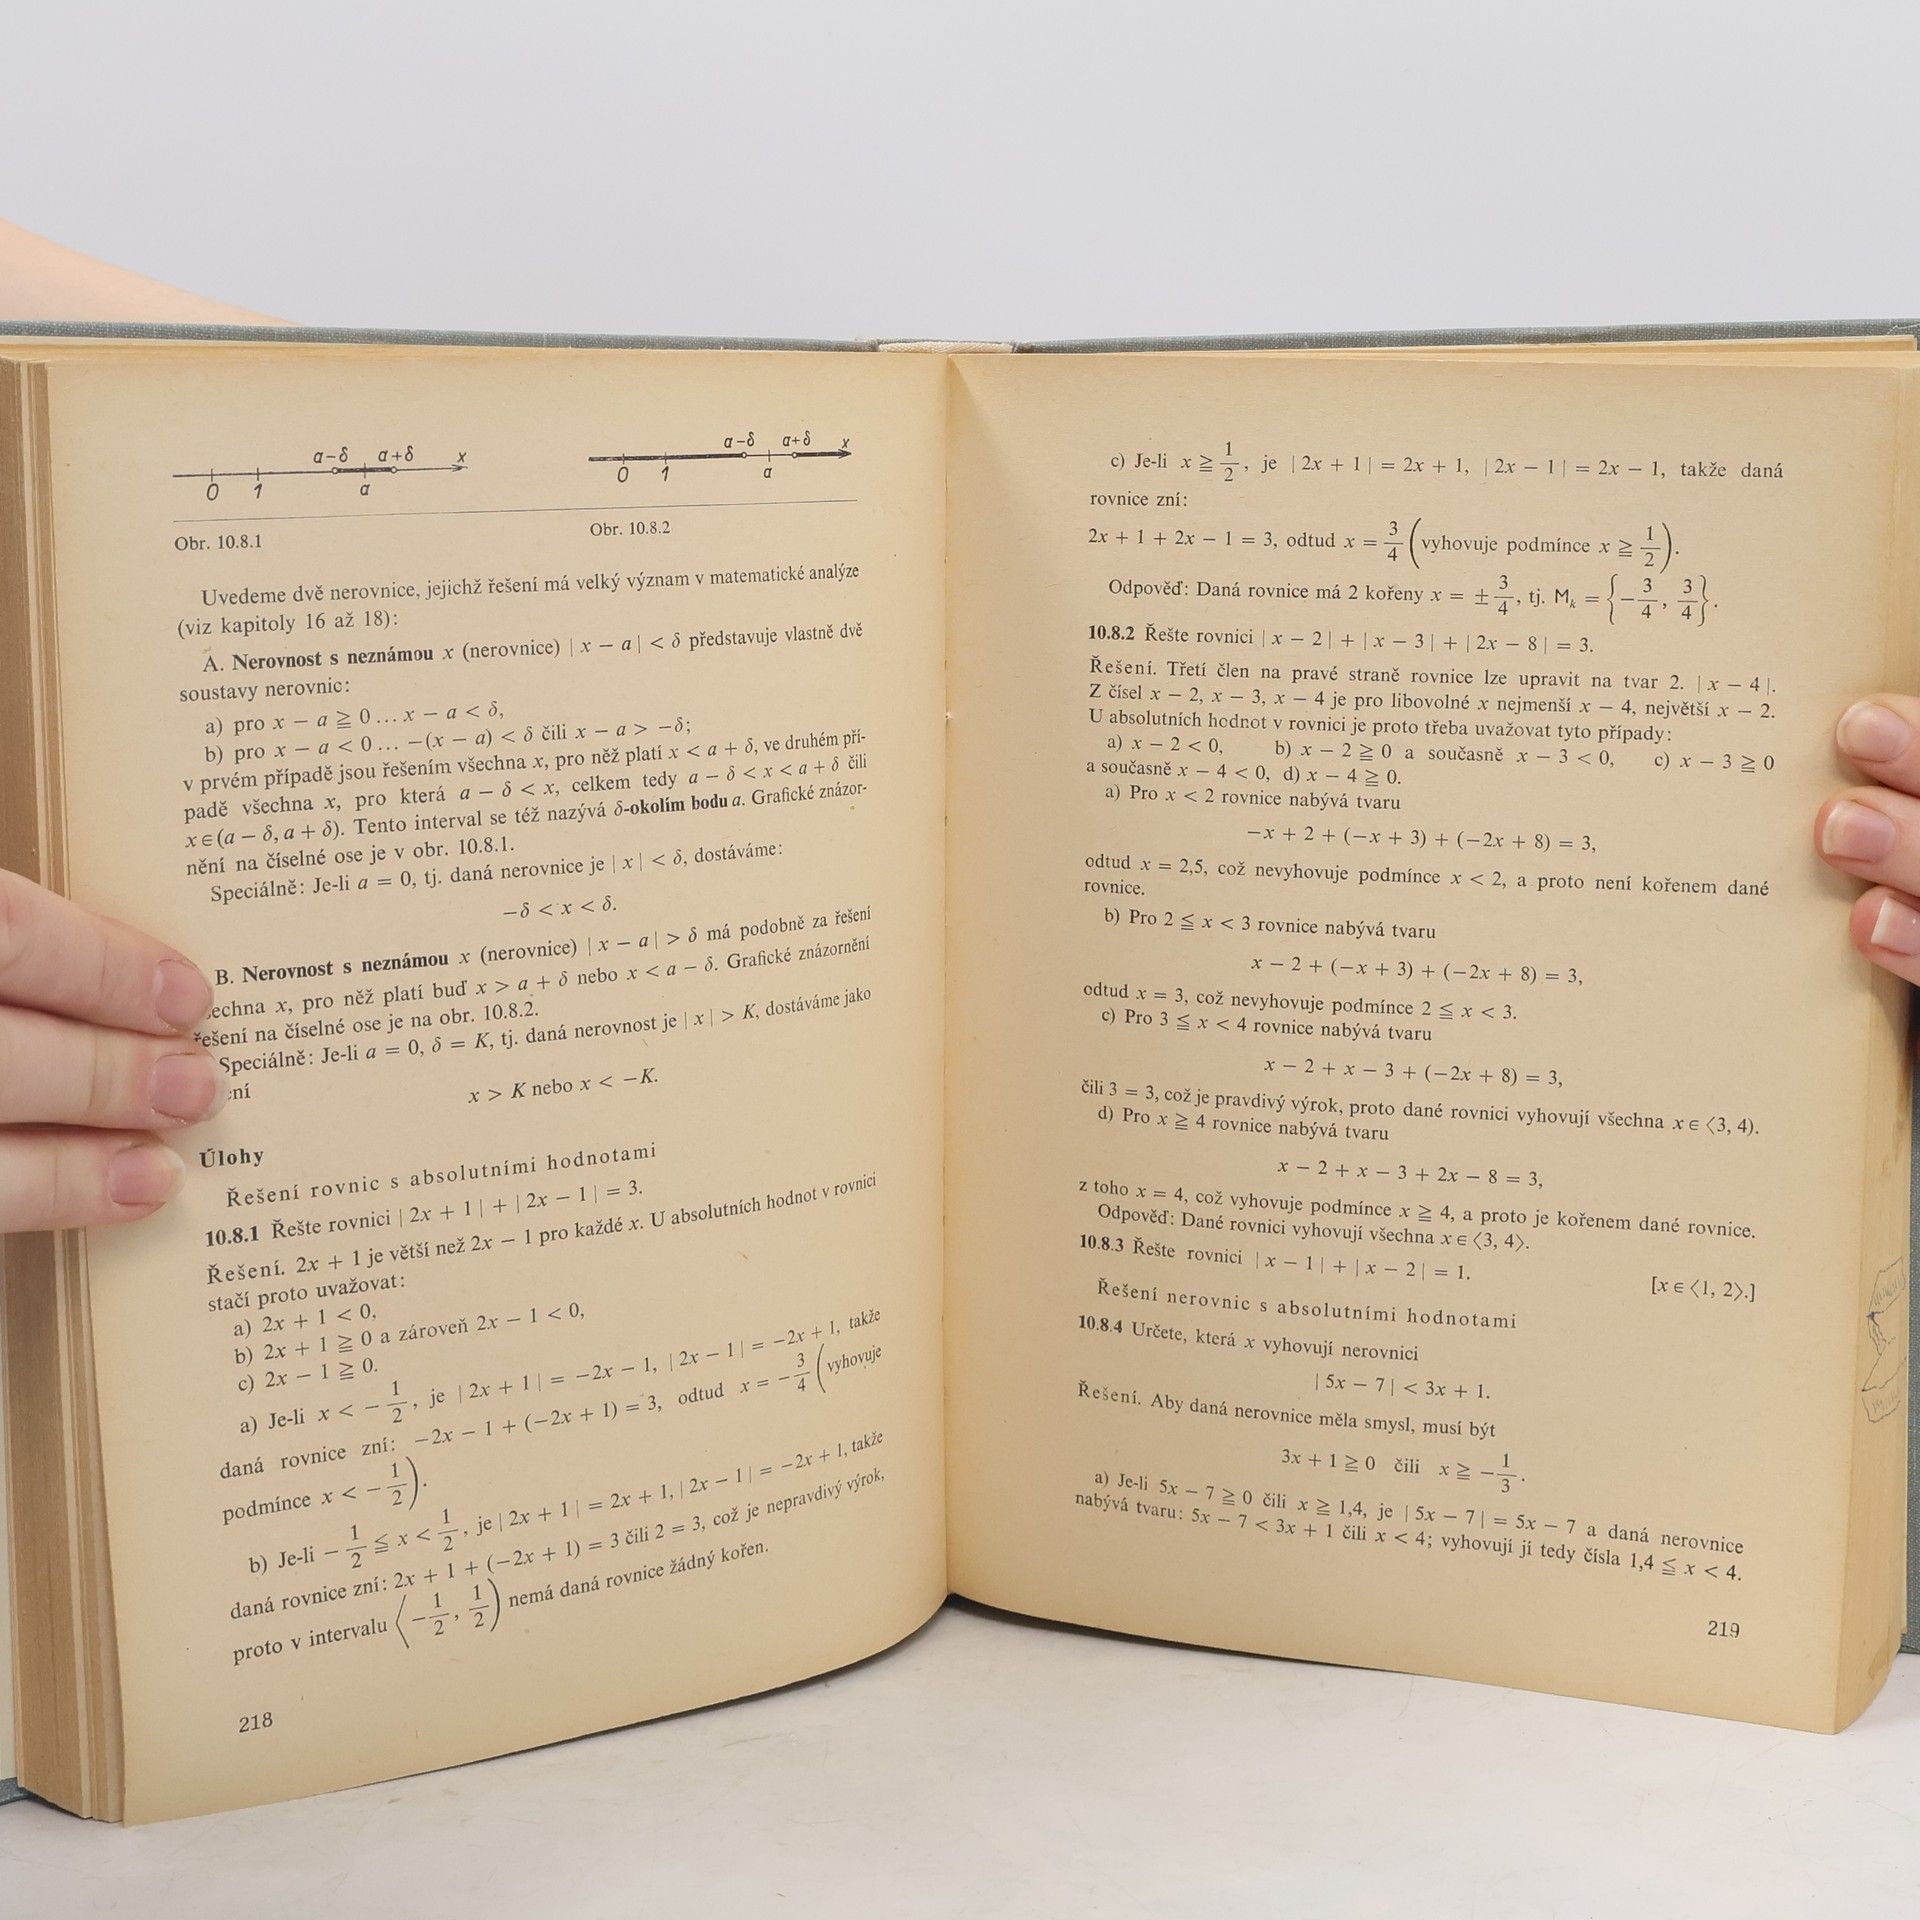 a–δ a+δ x
0 1 a
Obr. 10.8.1
a–δ a+δ x
0 1 a
Obr. 10.8.2
Uvedeme dvě nerovnice, jejichž řešení má velký význam v matematické analýze
(viz kapitoly 16 až 18):
A. Nerovnost s neznámou x (nerovnice) | x − a | < δ představuje vlastně dvě
soustavy nerovnic:
a) pro x − a ≧ 0 ... x − a < δ,
b) pro x − a < 0 ... −(x − a) < δ čili x − a > −δ;
v prvém případě jsou řešením všechna x, pro něž platí x < a + δ, ve druhém pří-
padě všechna x, pro která a − δ < x, celkem tedy a − δ < x < a + δ čili
x ∈ (a − δ, a + δ). Tento interval se též nazývá δ-okolím bodu a. Grafické znázor-
nění na číselné ose je v obr. 10.8.1.
Speciálně: Je-li a = 0, tj. daná nerovnice je | x | < δ, dostáváme:
−δ < x < δ.
B. Nerovnost s neznámou x (nerovnice) | x − a | > δ má podobně za řešení
echna x, pro něž platí buď x > a + δ nebo x < a − δ. Grafické znázornění
řešení na číselné ose je na obr. 10.8.2.
Speciálně: Je-li a = 0, δ = K, tj. daná nerovnost je | x | > K, dostáváme jako
ení
x > K nebo x < −K.
Úlohy
Řešení rovnic s absolutními hodnotami
10.8.1 Řešte rovnici | 2x + 1 | + | 2x − 1 | = 3.
Řešení. 2x + 1 je větší než 2x − 1 pro každé x. U absolutních hodnot v rovnici
stačí proto uvažovat:
a) 2x + 1 < 0,
b) 2x + 1 ≧ 0 a zároveň 2x − 1 < 0,
c) 2x − 1 ≧ 0.
a) Je-li x < −1/2, je | 2x + 1 | = −2x − 1, | 2x − 1 | = −2x + 1, takže
daná rovnice zní: −2x − 1 + (−2x + 1) = 3, odtud x = −3/4 (vyhovuje
podmínce x < −1/2).
b) Je-li −1/2 ≦ x < 1/2, je | 2x + 1 | = 2x + 1, | 2x − 1 | = −2x + 1, takže
daná rovnice zní: 2x + 1 + (−2x + 1) = 3 čili 2 = 3, což je nepravdivý výrok,
proto v intervalu ⟨−1/2, 1/2) nemá daná rovnice žádný kořen.
218
c) Je-li x ≧ 1/2, je | 2x + 1 | = 2x + 1, | 2x − 1 | = 2x − 1, takže daná
rovnice zní:
2x + 1 + 2x − 1 = 3, odtud x = 3/4 (vyhovuje podmínce x ≧ 1/2).
Odpověď: Daná rovnice má 2 kořeny x = ±3/4, tj. Mk = {−3/4, 3/4}.
10.8.2 Řešte rovnici | x − 2 | + | x − 3 | + | 2x − 8 | = 3.
Řešení. Třetí člen na pravé straně rovnice lze upravit na tvar 2. | x − 4 |.
Z čísel x − 2, x − 3, x − 4 je pro libovolné x nejmenší x − 4, největší x − 2.
U absolutních hodnot v rovnici je proto třeba uvažovat tyto případy:
a) x − 2 < 0, b) x − 2 ≧ 0 a současně x − 3 < 0, c) x − 3 ≧ 0
a současně x − 4 < 0, d) x − 4 ≧ 0.
a) Pro x < 2 rovnice nabývá tvaru
−x + 2 + (−x + 3) + (−2x + 8) = 3,
odtud x = 2,5, což nevyhovuje podmínce x < 2, a proto není kořenem dané
rovnice.
b) Pro 2 ≦ x < 3 rovnice nabývá tvaru
x − 2 + (−x + 3) + (−2x + 8) = 3,
odtud x = 3, což nevyhovuje podmínce 2 ≦ x < 3.
c) Pro 3 ≦ x < 4 rovnice nabývá tvaru
x − 2 + x − 3 + (−2x + 8) = 3,
čili 3 = 3, což je pravdivý výrok, proto dané rovnici vyhovují všechna x ∈ ⟨3, 4).
d) Pro x ≧ 4 rovnice nabývá tvaru
x − 2 + x − 3 + 2x − 8 = 3,
z toho x = 4, což vyhovuje podmínce x ≧ 4, a proto je kořenem dané rovnice.
Odpověď: Dané rovnici vyhovují všechna x ∈ ⟨3, 4⟩.
10.8.3 Řešte rovnici | x − 1 | + | x − 2 | = 1.
[x ∈ ⟨1, 2⟩.]
Řešení nerovnic s absolutními hodnotami
10.8.4 Určete, která x vyhovují nerovnici
| 5x − 7 | < 3x + 1.
Řešení. Aby daná nerovnice měla smysl, musí být
3x + 1 ≧ 0 čili x ≧ −1/3.
a) Je-li 5x − 7 ≧ 0 čili x ≧ 1,4, je | 5x − 7 | = 5x − 7 a daná nerovnice
nabývá tvaru: 5x − 7 < 3x + 1 čili x < 4; vyhovují jí tedy čísla 1,4 ≦ x < 4.
219